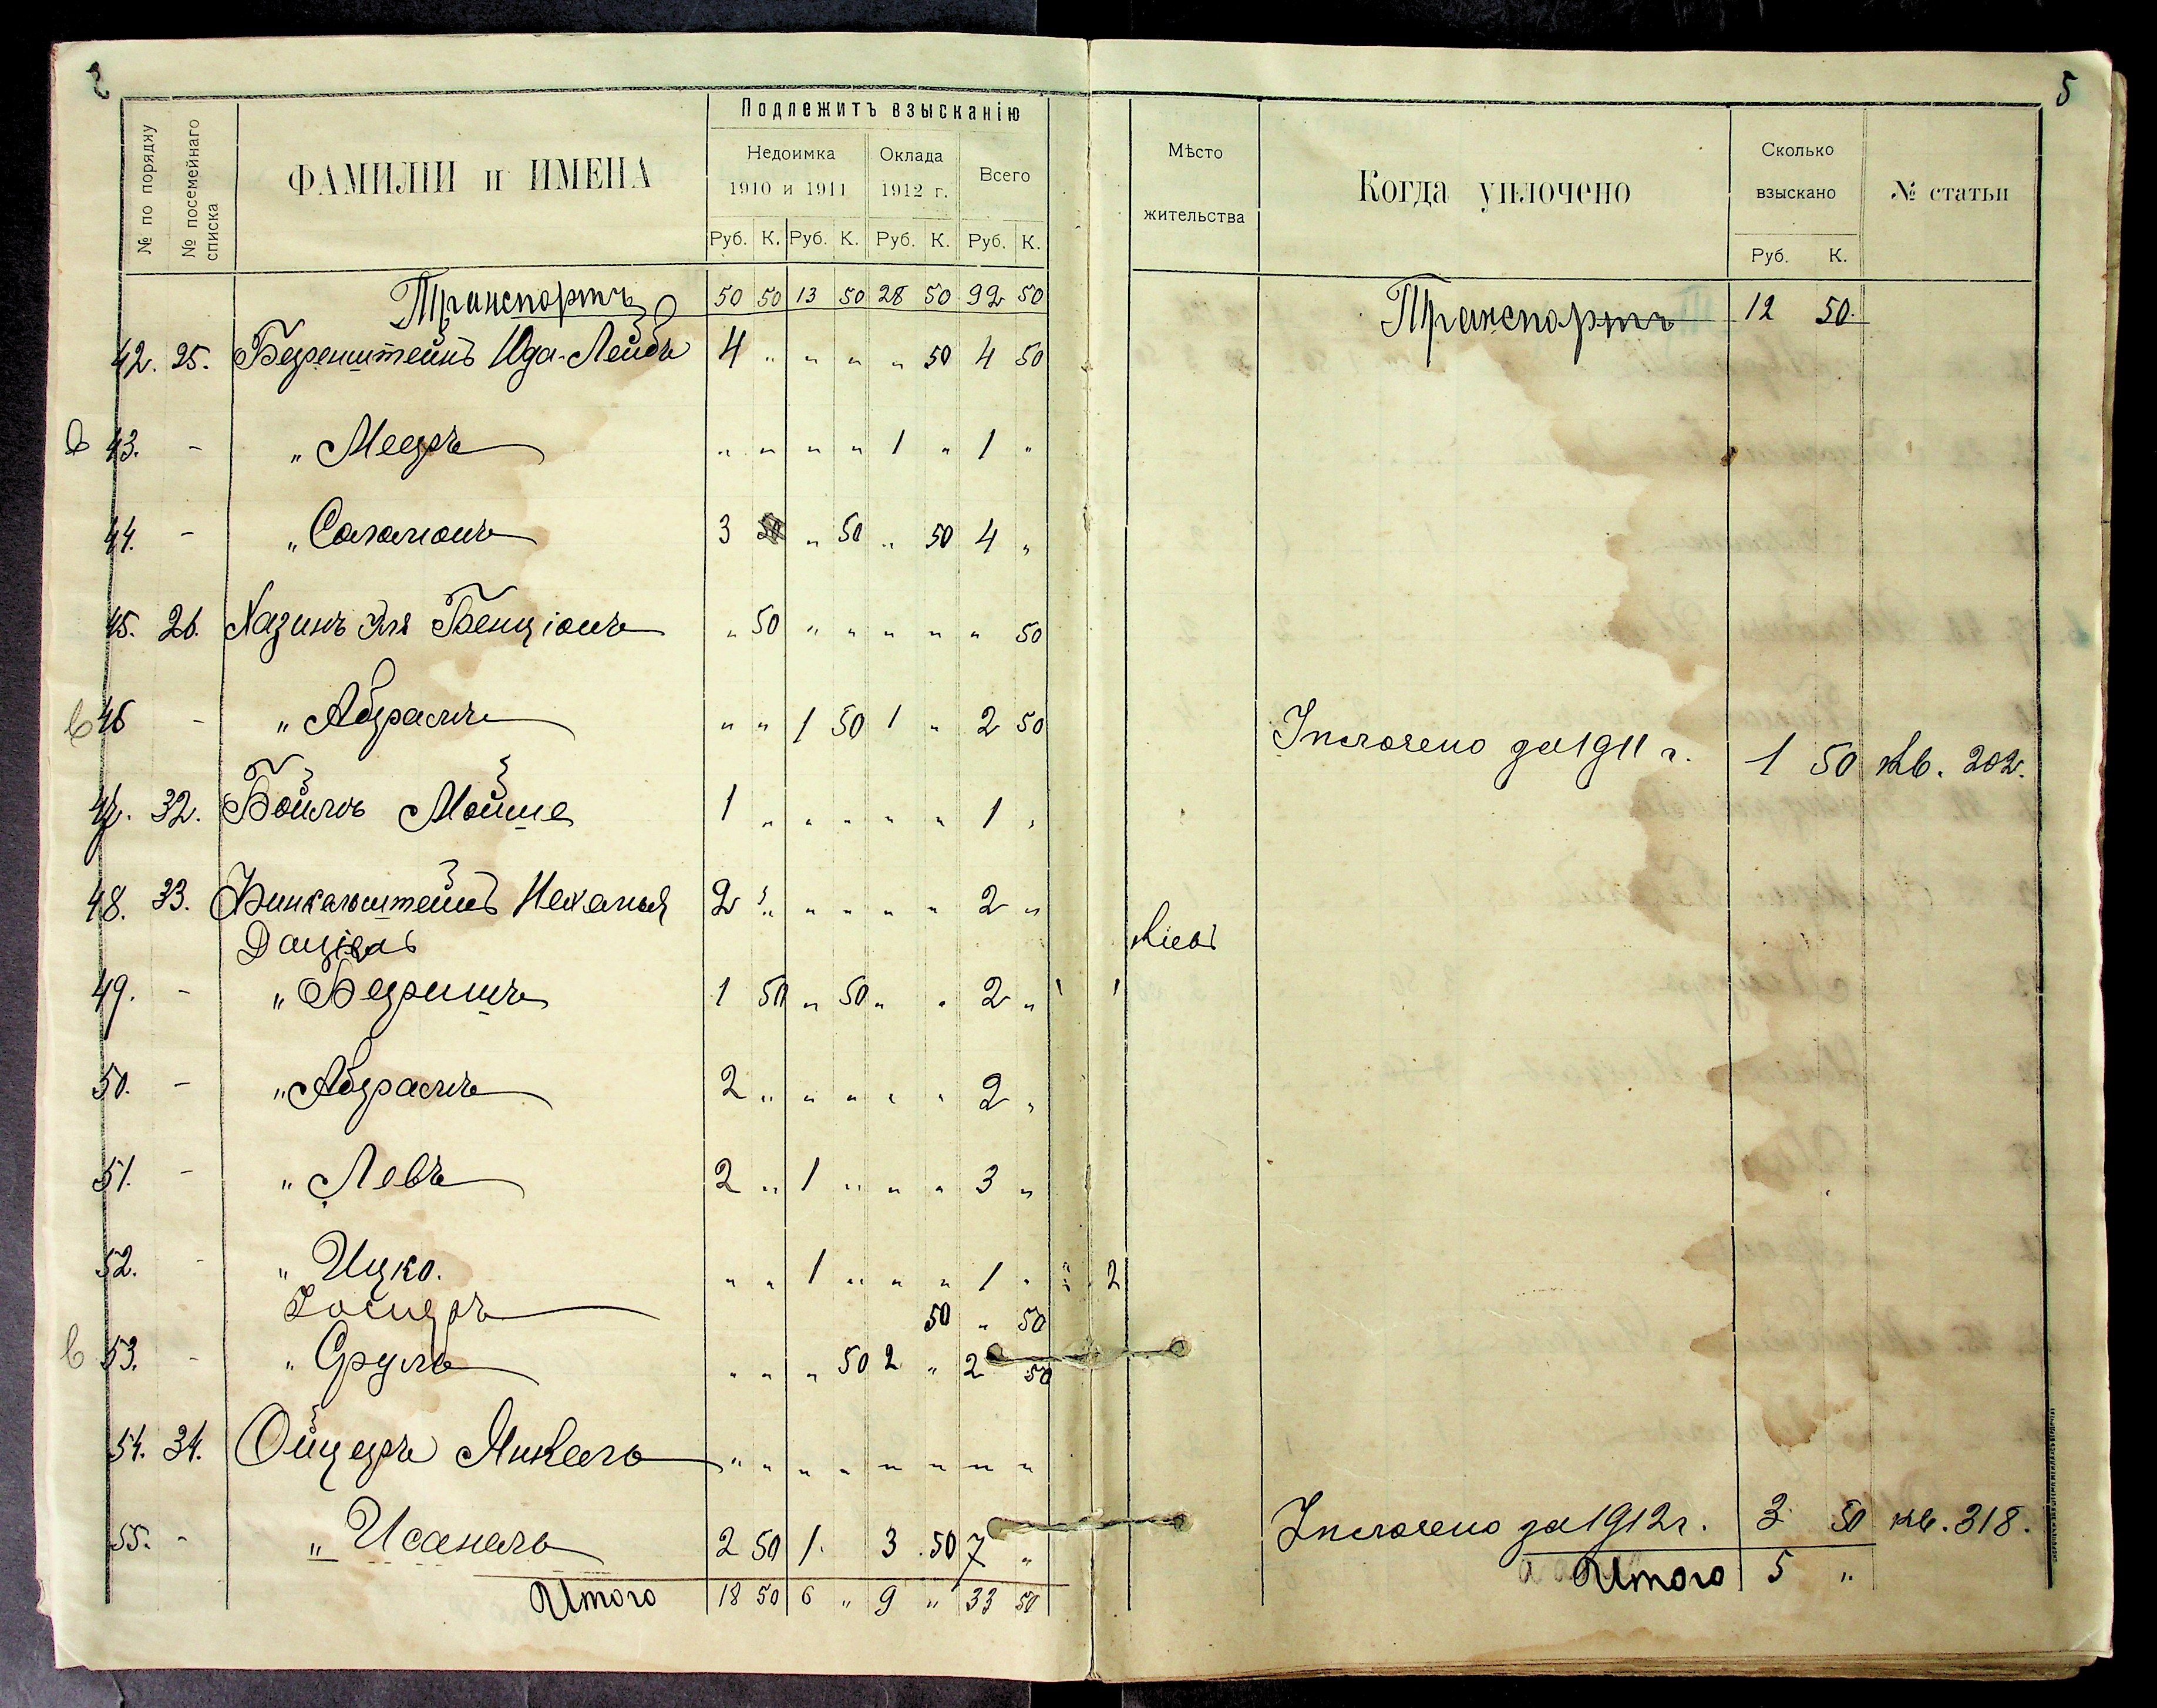 5
№ по порядку
№ посемейнаго списка
ФАМИЛІИ и ИМЕНА
Подлежитъ взысканію
Недоимка
1910 и 1911
Оклада
1912 г.
Всего
Руб. К. Руб. К. Руб. К. Руб. К.
Мѣсто
жительства
Когда уплочено
Сколько
взыскано
Руб. К.
№ статьи
Транспортъ 50 50 13 50 28 50 92 50 Транспортъ 12 50
42. 25. Беренштейнъ Юда-Лейбъ 4 " " " " 50 4 50
43. - " Мееръ " " " " 1 " 1 "
44. - " Соломонъ 3 " 50 " 50 4 "
45. 26. Хазинъ Эля Бенціонъ " 50 " " " " " 50
46 - " Абрамъ " " 1 50 1 " 2 50 Уплочено за 1911 г. 1 50 Кв. 202.
47. 32. Боймъ Мойше 1 " " " " " 1 "
48. 33. Финкельштейнъ Нехемья 2 " " " " " 2 " Кіевъ
Даніель
49. - " Беришъ 1 50 " 50 " " 2 "
50. - " Абрамъ 2 " " " " " 2 "
51. - " Левъ 2 " 1 " " " 3 "
52. - " Ицко. " " 1 " " " 1 " 2
50 " 50
53. - " Сруль " " " 50 2 " 2 50
54. 34. Ойцеръ Янкель " " " " " " " "
55. - " Исаналь 2 50 1 3 50 7 " Уплочено за 1912 г. 3 50 кв. 318.
Итого 18 50 6 " 9 " 33 50 Итого 5 "